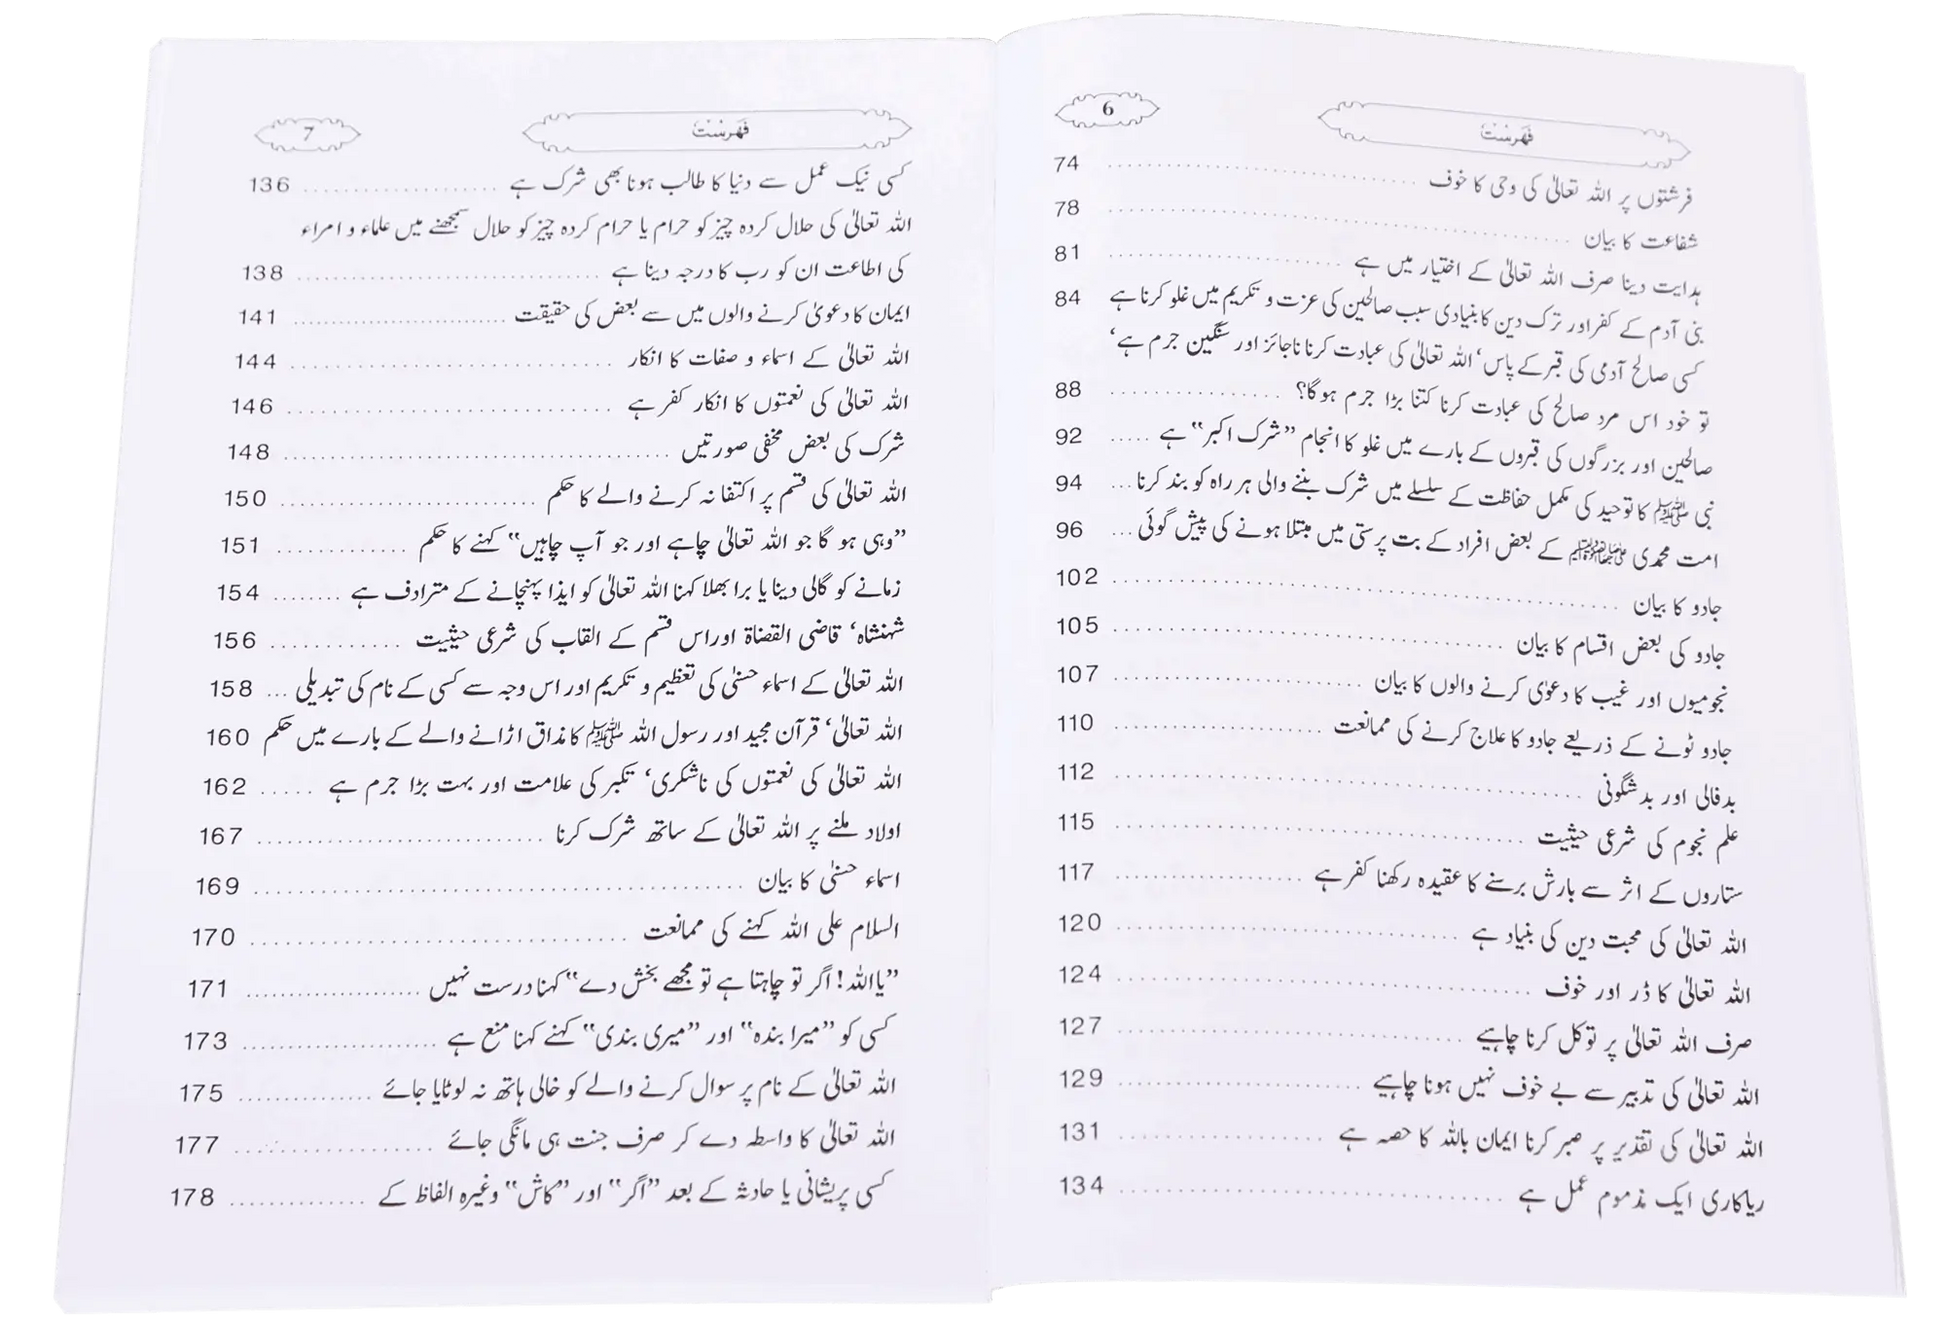 6
فہرست
فرشتوں پر اللہ تعالیٰ کی وحی کا خوف ........ 74
شفاعت کا بیان ........ 78
ہدایت دینا صرف اللہ تعالیٰ کے اختیار میں ہے ........ 81
بنی آدم کے کفر اور ترک دین کا بنیادی سبب صالحین کی عزت و تکریم میں غلو کرنا ہے 84
کسی صالح آدمی کی قبر کے پاس، اللہ تعالیٰ کی عبادت کرنا ناجائز اور سنگین جرم ہے،
تو خود اس مرد صالح کی عبادت کرنا کتنا بڑا جرم ہوگا؟ ........ 88
صالحین اور بزرگوں کی قبروں کے بارے میں غلو کا انجام ”شرک اکبر“ ہے ..... 92
نبی ﷺ کا توحید کی مکمل حفاظت کے سلسلے میں شرک بننے والی ہر راہ کو بند کرنا ... 94
امت محمدی ﷺ کے بعض افراد کے بت پرستی میں مبتلا ہونے کی پیش گوئی ... 96
جادو کا بیان ........ 102
جادو کی بعض اقسام کا بیان ........ 105
نجومیوں اور غیب کا دعوٰی کرنے والوں کا بیان ........ 107
جادو ٹونے کے ذریعے جادو کا علاج کرنے کی ممانعت ........ 110
بدفالی اور بدشگونی ........ 112
علم نجوم کی شرعی حیثیت ........ 115
ستاروں کے اثر سے بارش برسنے کا عقیدہ رکھنا کفر ہے ........ 117
اللہ تعالیٰ کی محبت دین کی بنیاد ہے ........ 120
اللہ تعالیٰ کا ڈر اور خوف ........ 124
صرف اللہ تعالیٰ پر توکل کرنا چاہیے ........ 127
اللہ تعالیٰ کی تدبیر سے بے خوف نہیں ہونا چاہیے ........ 129
اللہ تعالیٰ کی تقدیر پر صبر کرنا ایمان باللہ کا حصہ ہے ........ 131
ریاکاری ایک مذموم عمل ہے ........ 134
فہرست
7
کسی نیک عمل سے دنیا کا طالب ہونا بھی شرک ہے ........ 136
اللہ تعالیٰ کی حلال کردہ چیز کو حرام یا حرام کردہ چیز کو حلال سمجھنے میں علماء و امراء
کی اطاعت ان کو رب کا درجہ دینا ہے ........ 138
ایمان کا دعویٰ کرنے والوں میں سے بعض کی حقیقت ........ 141
اللہ تعالیٰ کے اسماء و صفات کا انکار ........ 144
اللہ تعالیٰ کی نعمتوں کا انکار کفر ہے ........ 146
شرک کی بعض مخفی صورتیں ........ 148
اللہ تعالیٰ کی قسم پر اکتفا نہ کرنے والے کا حکم ........ 150
”وہی ہو گا جو اللہ تعالیٰ چاہے اور جو آپ چاہیں“ کہنے کا حکم ........ 151
زمانے کو گالی دینا یا برا بھلا کہنا اللہ تعالیٰ کو ایذا پہنچانے کے مترادف ہے ........ 154
شہنشاہ، قاضی القضاۃ اور اس قسم کے القاب کی شرعی حیثیت ........ 156
اللہ تعالیٰ کے اسماء حسنیٰ کی تعظیم و تکریم اور اس وجہ سے کسی کے نام کی تبدیلی ... 158
اللہ تعالیٰ، قرآن مجید اور رسول اللہ ﷺ کا مذاق اڑانے والے کے بارے میں حکم 160
اللہ تعالیٰ کی نعمتوں کی ناشکری، تکبر کی علامت اور بہت بڑا جرم ہے ..... 162
اولاد ملنے پر اللہ تعالیٰ کے ساتھ شرک کرنا ........ 167
اسماء حسنیٰ کا بیان ........ 169
السلام علی اللہ کہنے کی ممانعت ........ 170
”یا اللہ! اگر تو چاہتا ہے تو مجھے بخش دے“ کہنا درست نہیں ........ 171
کسی کو ”میرا بندہ“ اور ”میری بندی“ کہنے کہنا منع ہے ........ 173
اللہ تعالیٰ کے نام پر سوال کرنے والے کو خالی ہاتھ نہ لوٹایا جائے ........ 175
اللہ تعالیٰ کا واسطہ دے کر صرف جنت ہی مانگی جائے ........ 177
کسی پریشانی یا حادثہ کے بعد ”اگر“ اور ”کاش“ وغیرہ الفاظ کے ........ 178